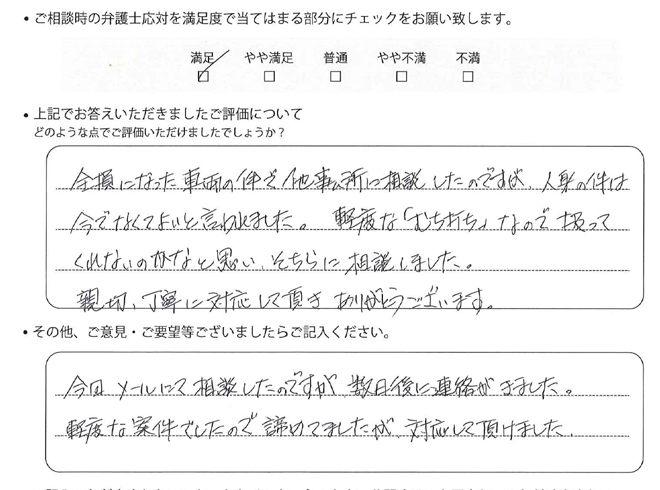 • ご相談時の弁護士応対を満足度で当てはまる部分にチェックをお願い致します。
満足 やや満足 普通 やや不満 不満
• 上記でお答えいただきましたご評価について
どのような点でご評価いただけましたでしょうか？
全損になった車両の件で他事ム所に相談したのですが、人身の件は
今でなくてよいと言われました。 軽度な「むち打ち」なので扱って
くれないのかなと思い、そちらに相談しました。
親切、丁寧に対応して頂きありがとうございます。
• その他、ご意見・ご要望等ございましたらご記入ください。
今回メールにて相談したのですが、数日後に連絡がきました。
軽度な案件でしたので諦めてましたが、対応して頂けました。